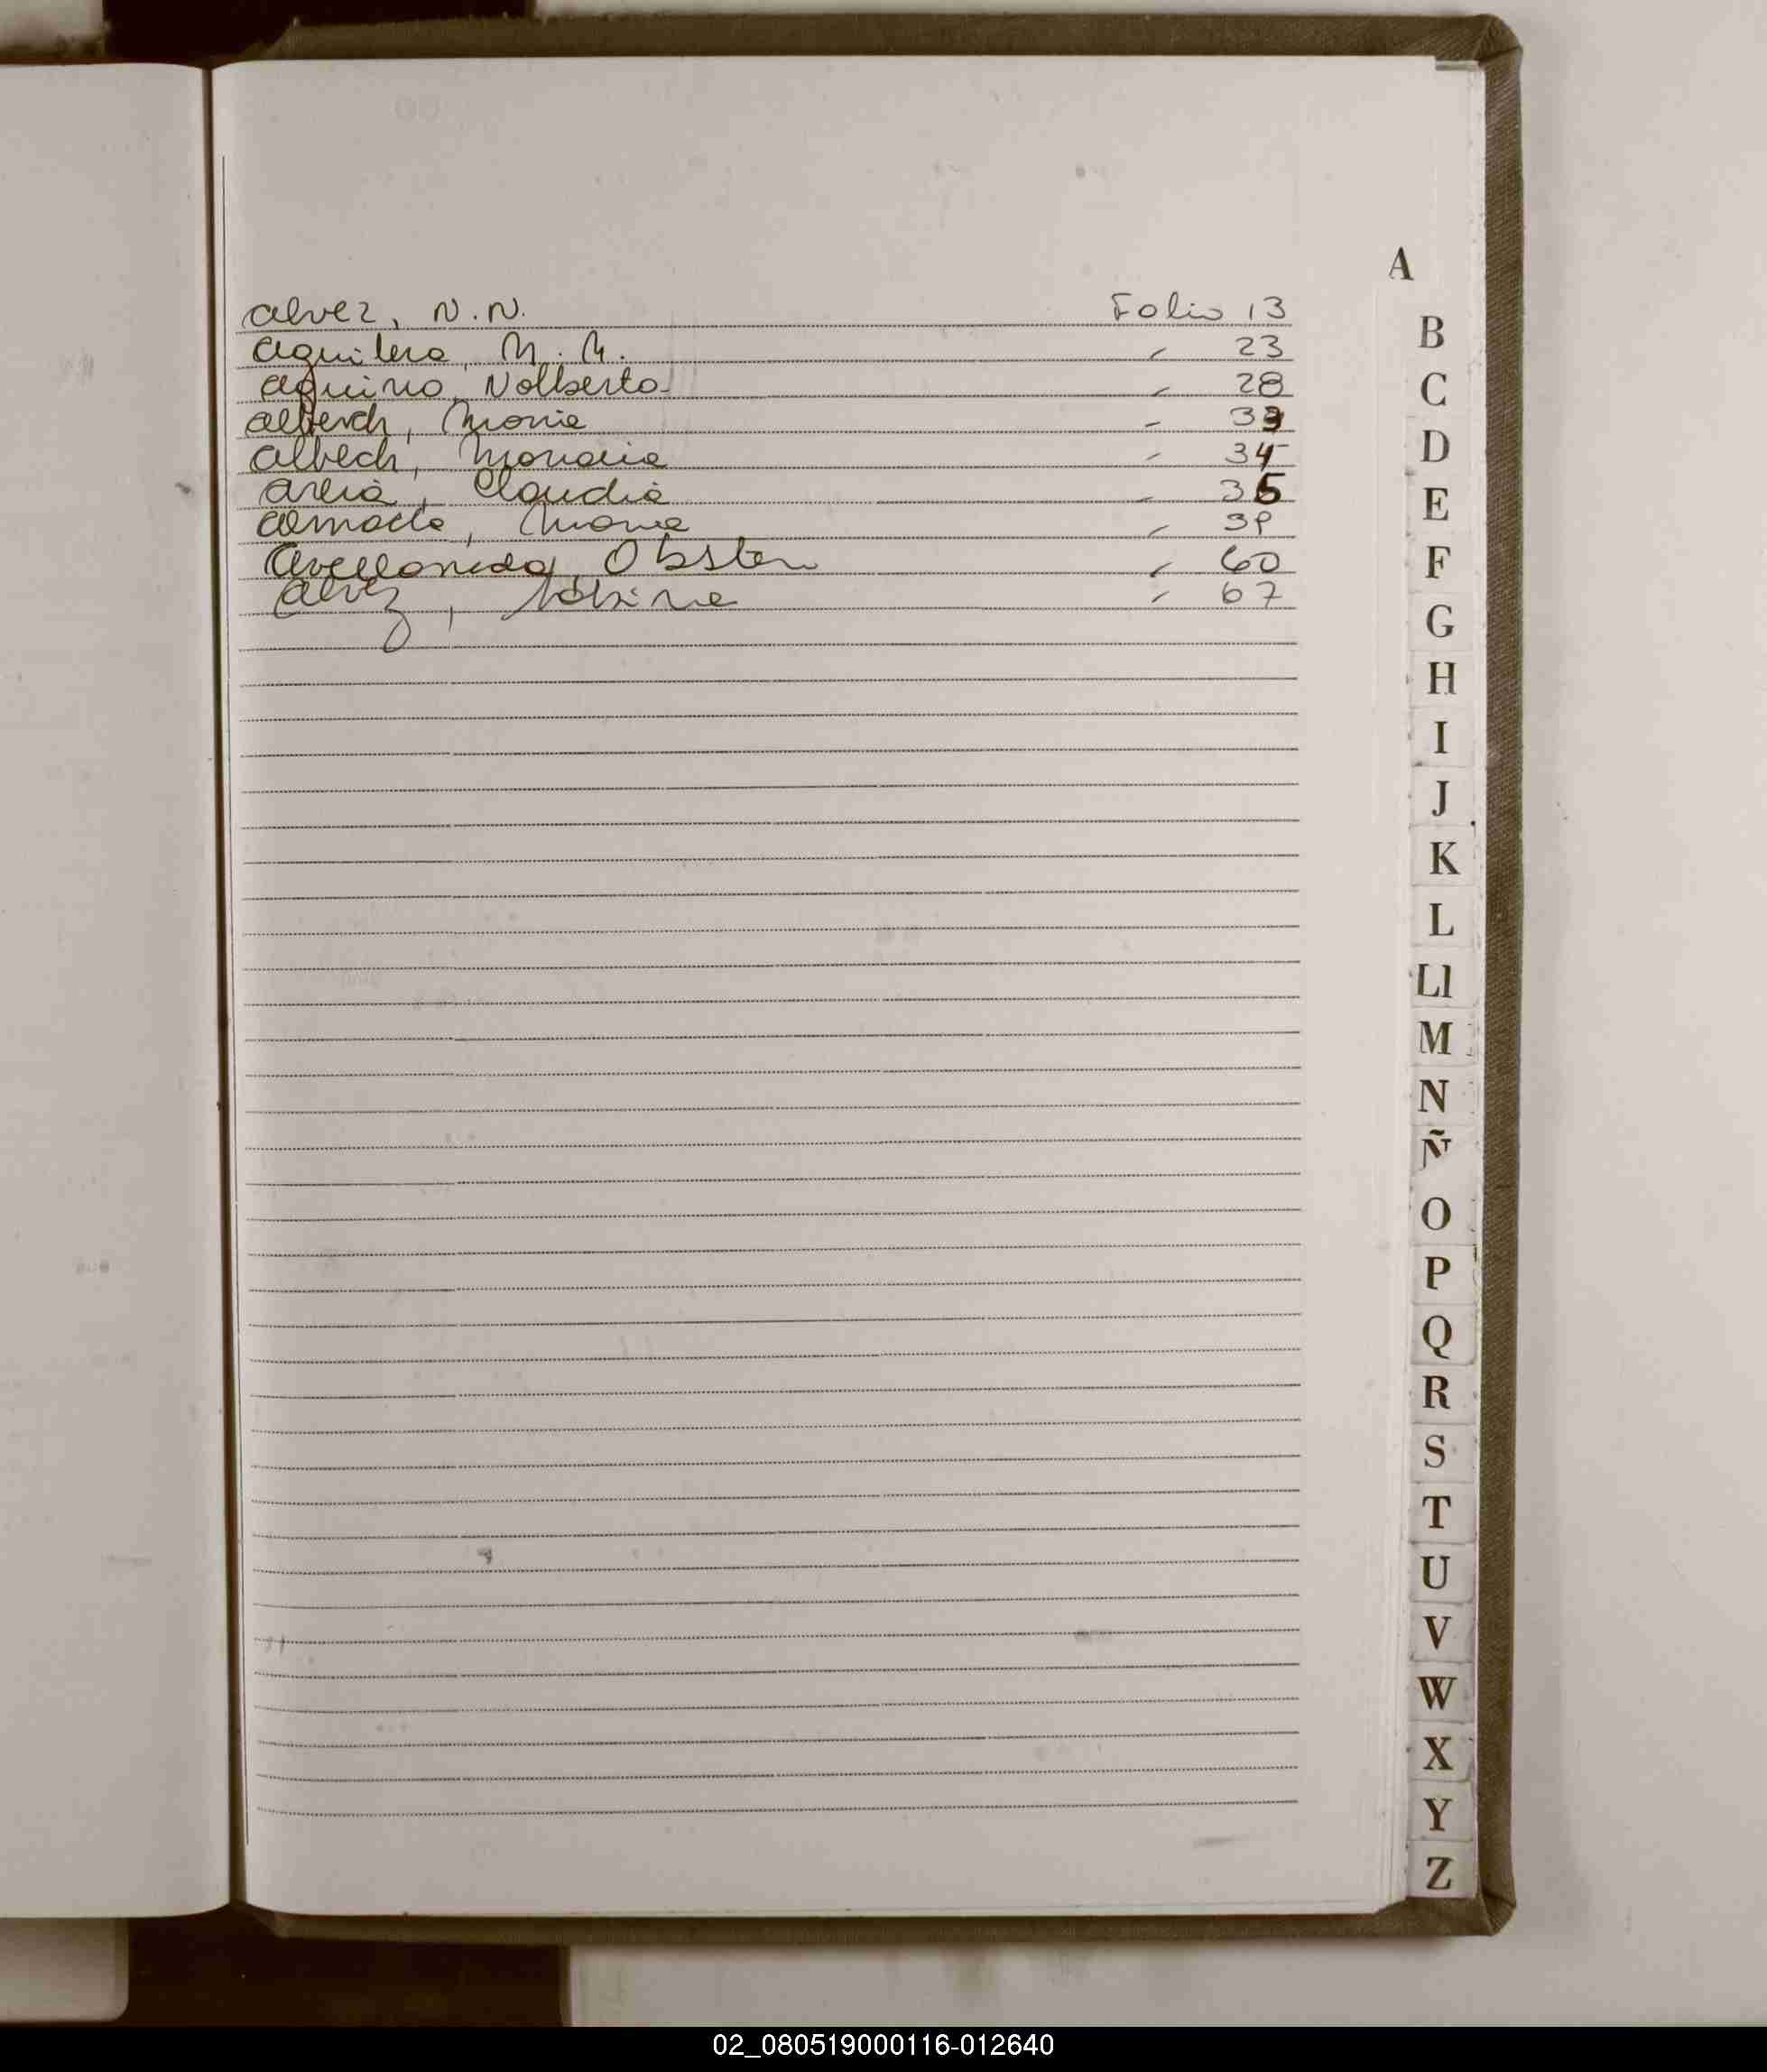 A
alvez, N.N. Folio 13
aguilera, M. M. " 23
aquino, Nolberto " 28
alberch, Maria " 33
albech, Mariana " 34
arcia, Claudia " 36
Maria " 39
Avellaneda, " 60
alvez, " 67
B
C
D
E
F
G
H
I
J
K
L
Ll
M
N
Ñ
O
P
Q
R
S
T
U
V
W
X
Y
Z
02_080519000116-012640